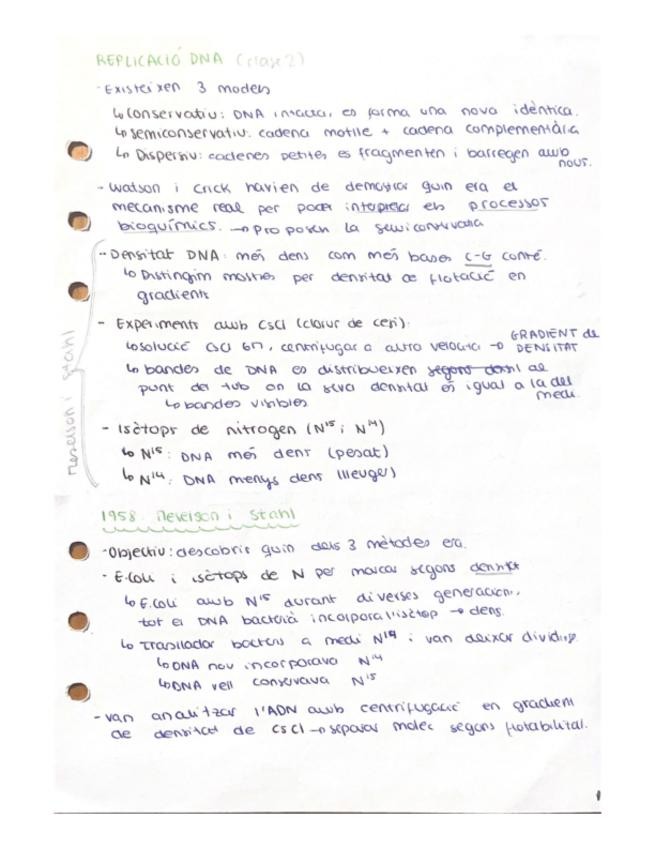 REPLICACIÓ DNA (clase 2)
- Existeixen 3 models
↳ Conservatiu: DNA intacta, es forma una nova idèntica.
↳ semiconservatiu: cadena motlle + cadena complementària
↳ Dispersiu: cadenes petites es fragmenten i barregen amb nous.
- Watson i Crick havien de demostrar quin era el
mecanisme real per poder interpretar els processos
bioquímics. → Proposen la semiconservativa
- Densitat DNA: més dens com més bases C-G conté.
↳ Distingim mostres per densitat de flotació en
gradients
- Experiments amb CsCl (clorur de cesi):
↳ solució CsCl 6M, centrifugar a altra velocitat → GRADIENT de DENSITAT
↳ bandes de DNA es distribueixen segons al
punt del tub on la seva densitat és igual a la del medi.
↳ bandes visibles
- Isòtops de nitrogen (N15 i N14)
↳ N15: DNA més dens (pesat)
↳ N14: DNA menys dens (lleuger)
Meselson i Stahl
1958. Meselson i Stahl
- Objectiu: descobrir quin dels 3 mètodes era.
- E.Coli i isòtops de N per marcar segons densitat
↳ E.coli amb N15 durant diverses generacions,
tot el DNA bacterià incorpora l'isòtop → dens.
↳ Traslladar bacteris a medi N14 i van deixar dividir
↳ DNA nou incorporava N14
↳ DNA vell conservava N15
- van analitzar l'ADN amb centrifugació en gradient
de densitat de CsCl → separar molec segons flotabilitat.